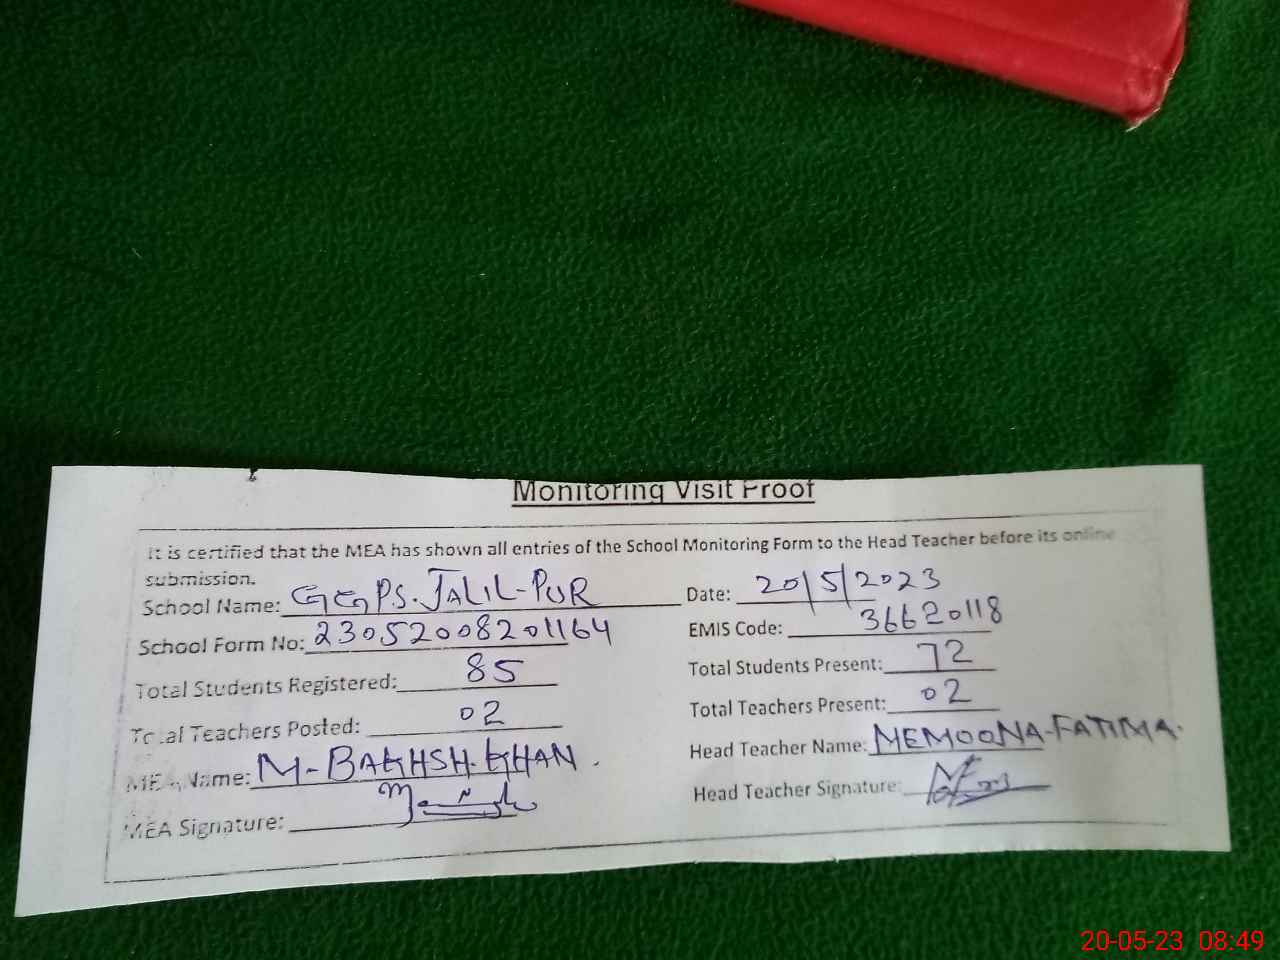 Monitoring Visit Proof
It is certified that the MEA has shown all entries of the School Monitoring Form to the Head Teacher before its online
submission.
School Name: GGPS. JALIL-PUR Date: 20/5/2023
School Form No: 23052008201164 EMIS Code: 36620118
Total Students Registered: 85 Total Students Present: 72
Total Teachers Posted: 02 Total Teachers Present: 02
MEA Name: M-BAKHSH-KHAN. Head Teacher Name: MEMOONA-FATIMA.
MEA Signature: Head Teacher Signature:
20-05-23 08:49